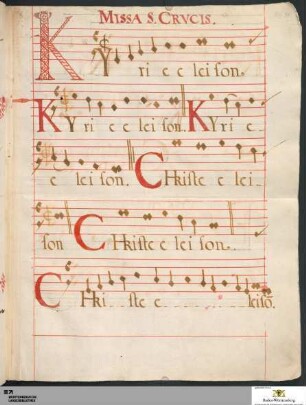 MISSA S. CRVCIS.
KYri e e lei son.
KYri e e lei son. KYri e
e lei son. CHriste e lei
son CHriste e lei son.
CHri ste e leisō.
Baden-Württemberg